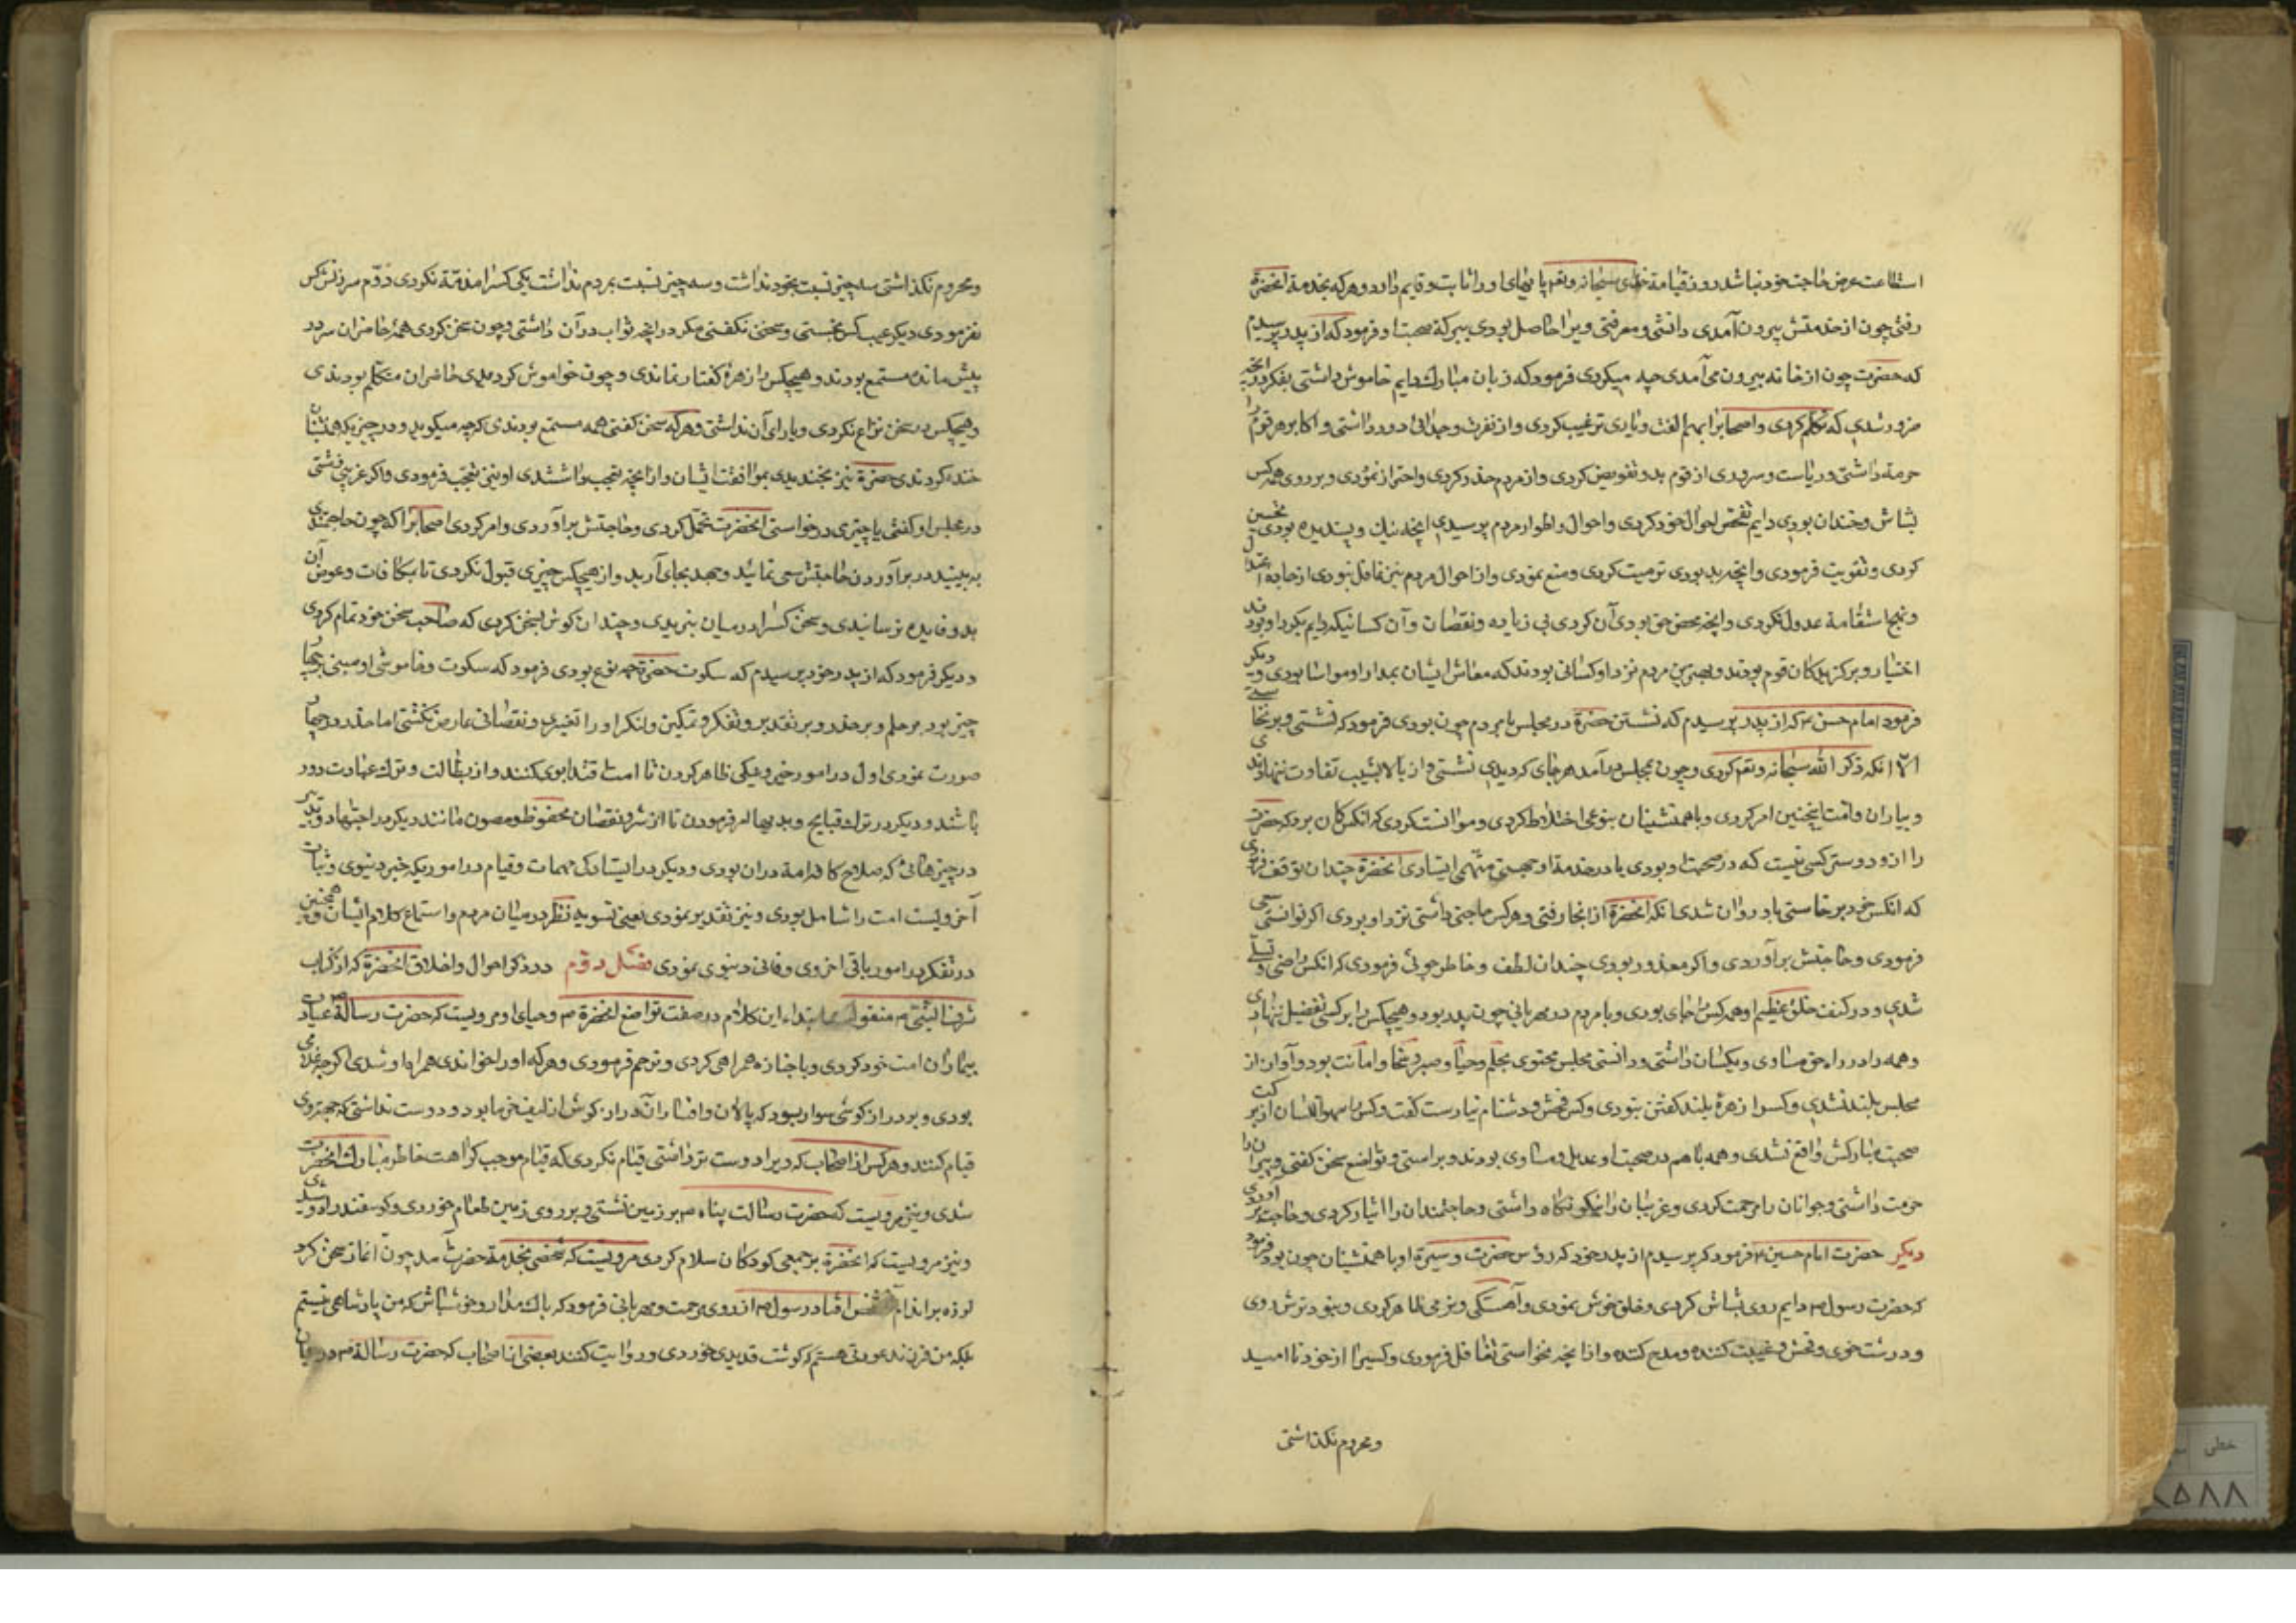 استطاعت عرض حاجت خود نباشد روز قیامة خدای سبحانه و تعم پایهای او را ثابت و قایم دارد و هرکه بخدمة انحضرة
رفتی چون از خدمتش بیرون آمدی دانشی و معرفتی ویرا حاصل بودی ببرکة صحبتا و فرمود که از پدر پرسیدم
که حضرت چون از خانه بیرون می آمدی چه میکردی فرمود که زبان مبارک دایم خاموش داشتی بفکر در انچه
ضرور شدی که تکلم کردی و اصحابرا بهم الفت و یاری ترغیب کردی و از نفرت و جدائی دور داشتی و اکابر هر قوم را
حرمة داشتی و ریاست و سروری از قوم بدو تفویض کردی و از مردم حذر کردی و احتراز نمودی و بر روی همه کس
بشاش و خندان بودی دایم تفحص احوال خود کردی و احوال و اطوار مردم پرسیدی انچه نیک و پسندیده بودی تحسین
کردی و تقویت فرمودی و انچه بد بودی ترمیت کردی و منع نمودی و از احوال مردم نیز غافل نبودی از جاده اعتدال
و نهج استقامة عدول نکردی و انچه محض حق بودی آن کردی بی زیاده و نقصان و آن کسانیکه دایم بکرد او بودند
اختیار و برکزیدکان قوم بودند و بهترین مردم نزد او کسانی بودند که معاش ایشان بمدار او مواسا بودی و دیکر
فرمود امام حسن ع که از پدر پرسیدم که نشستن حضرة در مجلس با مردم چون بودی فرمود که نشستی و برنخاستی
الا انکه ذکر الله سبحانه و تعم کردی و چون بمجلس در آمد هر جای که دیدی نشستی و از بالا بشیب تفاوت ننهادی
و بیاران و امت اینچنین امر کردی و با همنشینان بنوعی اختلاط کردی و موانست کردی که انکس کان برد که حضرت
را ازو دوستر کسی نیست که در صحبت او بودی یا در خدمة او بجهت مهمی ایستادی انحضرة چندان توقف فرمودی
که انکس خود برخاستی یا روان شدی انکه انحضرة از انجا رفتی و هرکس حاجتی داشتی نزد او بردی اکر توانستی سعی
فرمودی و حاجتش برآوردی و اکر معذور بودی چندان لطف و خاطر جوئی فرمودی که انکس راضی و تسلی
شدی و در کنف خلق عظیم او همه کس را جای بودی و با مردم در مهربانی چون پدر بود و هیچکس را بر کسی تفضیل ننهادی
و همه را در راه حق مساوی و یکسان داشتی و دانستی مجلس محتوی بحلم و حیا و صبر و سخا و امانت بود و آواز از
مجلس بلند نشدی و کسرا زهرۀ بلند کفتن نبودی و کس فحش و دشنام نیارست کفت و کس را سهو اللسان از برکت
صحبت مبارکش واقع نشدی و همه با هم در صحبت او عدیل و مساوی بودند و براستی و تواضع سخن کفتی و پیرانرا
حرمت داشتی و جوانان را مرحمت کردی و غریبان را نیکو نکاه داشتی و حاجتمندان را ایثار کردی و حاجت برآوردی
دیکر حضرت امام حسین ع فرمود که پرسیدم از پدر خود که روش حضرت و سیرة او با همنشینان چون بود فرمود
که حضرت رسول ص دایم روی بشاش کردی و خلق خوش نمودی و آهستکی و نرمی ظاهر کردی و نبود ترش روی
و درشت خوی و فحش و غیبت کننده و مدح کننده و از انچه نخواستی تغافل فرمودی و کسیرا از خود نا امید
و محروم نکذاشتی
و محروم نکذاشتی سه چیز نسبت بخود نداشت و سه چیز نسبت بمردم نداشت یکی کسرا مذمّة نکردی دوّم سرزنش کس
نفرمودی دیکر عیب کس نجستی و سخن نکفتی مکر در انچه ثواب در آن داشتی و چون سخن کردی همه حاضران سر در
پیش مانده مستمع بودند و هیچکس را زهرۀ کفتار نماندی و چون خواموش کردیدی حاضران متکلم بودندی
و هیچکس در سخن نزاع نکردی و یارای آن نداشتی و هرکه سخن کفتی همه مستمع بودندی کرچه میکوید و در چیزیکه همنشینان
خنده کردندی حضرة نیز بخندیدی بموافقت ایشان و از انچه تعجب داشتندی او نیز تعجب فرمودی و اکر غریبی نشستی
در مجلس او کفتی یا چیزی درخواستی انحضرت تحمل کردی و حاجتش برآوردی و امر کردی اصحابرا که چون حاجتمندی
به بینید در برآوردن حاجتش سعی نمائید و جهد بجای آرید و از هیچکس چیزی قبول نکردی تا مکافات و عوض آن
بدو فایده نرسانیدی و سخن کسرا در میان نبریدی و چندان کوش بسخن کردی که صاحب سخن خود تمام کردی
و دیکر فرمود که از پدر خود پرسیدم که سکوت حضرة چه نوع بودی فرمود که سکوت و خاموشی او مبنی بر چهار
چیز بود بر حلم و بر حذر و بر تقدیر و تفکر و تمکین و لنکر او را تغییری و نقصانی عارض نکشتی اما حذر در چهار
صورت نمودی اول در امور خیر و نیکی ظاهر کردن تا امت اقتدا بوی کنند و از بطالت و ترک عبادت دور
باشند و دیکر در ترک قبایح و بدیها امر فرمودن تا از شر و نقصان محفوظ و مصون مانند دیکر در اجتهاد و تدبیر
در چیزهائی که صلاح کافه امة دران بودی و دیکر در ایستادکی مهمات و قیام در اموریکه خیر دنیوی و ثبات
آخرویست امت را شامل بودی و نیز تقدیر نمودی یعنی تسویه نظر در میان مردم و استماع کلام ایشان و همچنین
در تفکر در امور باقی اخروی و فانی دنیوی نمودی فصل دوّم در ذکر احوال و اخلاق انحضرة که از کتاب
شرف النبی ص منقول ابتداء این کلام در صفت تواضع انحضرة ص و حیای او مرویست که حضرت رسالة ص عیادت
بیماران امت خود کردی و با جنازه همراهی کردی و ترحم فرمودی و هرکه او را خواندی همراه او شدی اکرچه غلامی
بودی و بر دراز کوشی سوار بود که پالان و افسار آن دراز کوش از لیف خرما بود و دوست نداشتی که بجهت وی
قیام کنند و هرکس از اصحاب که ویرا دوست تر داشتی قیام نکردی که قیام موجب کراهت خاطر مبارک انحضرت
شدی و نیز مرویست که حضرت رسالت پناه ص بر زمین نشستی و بر روی زمین طعام خوردی و کوسفند را دوشیدی
و نیز مرویست که انحضرة بر جمعی کودکان سلام کردی مرویست که شخصی بخدمة حضرت آمد چون آغاز سخن کرد
لرزه بر اندام شخص افتاد رسول ص از روی مرحمت و مهربانی فرمود که باک مدار و خوش باش که من پادشاهی نیستم
بلکه من فرزند عورتی هستم که کوشت قدیدی خوردی و روایت کنند بعضی از اصحاب که حضرت رسالة ص در میان